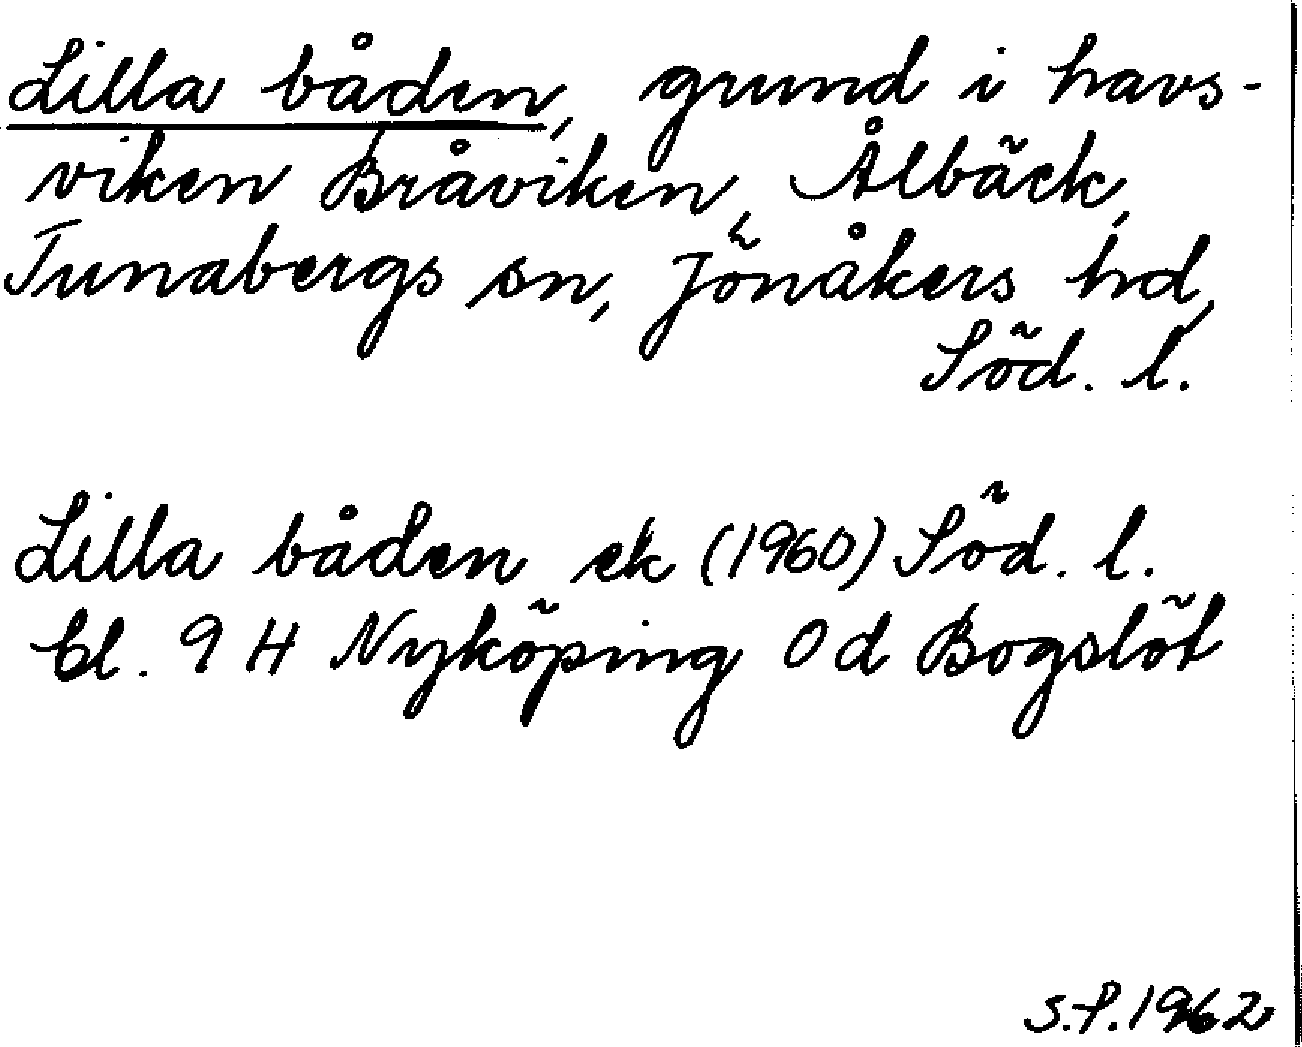 Lilla båden, grund i havs-
viken Bråviken, Ålbäck,
Tunabergs sn, Jönåkers hd,
Söd. l.
Lilla båden ek (1960) Söd. l.
bl. 9 H Nyköping 0 d Bogslöt
S.P. 1962